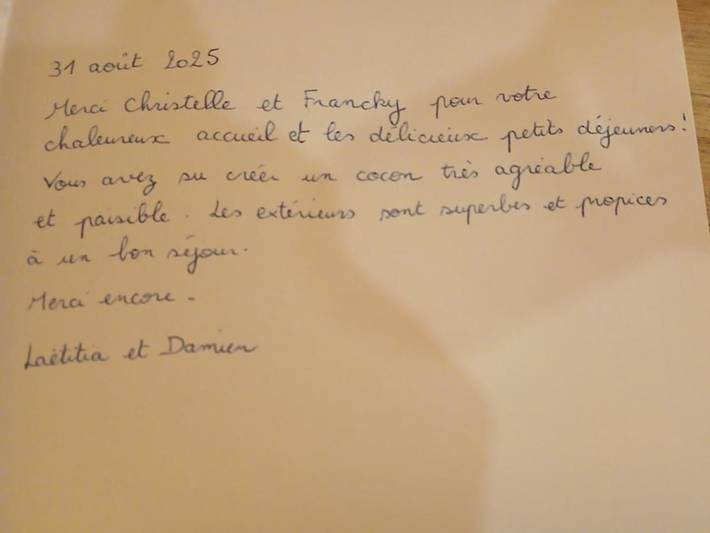 31 août 2025
Merci Christelle et Francky pour votre
chaleureux accueil et les délicieux petits déjeuners!
Vous avez su créer un cocon très agréable
et paisible. Les extérieurs sont superbes et propices
à un bon séjour.
Merci encore -
Laëtitia et Damien